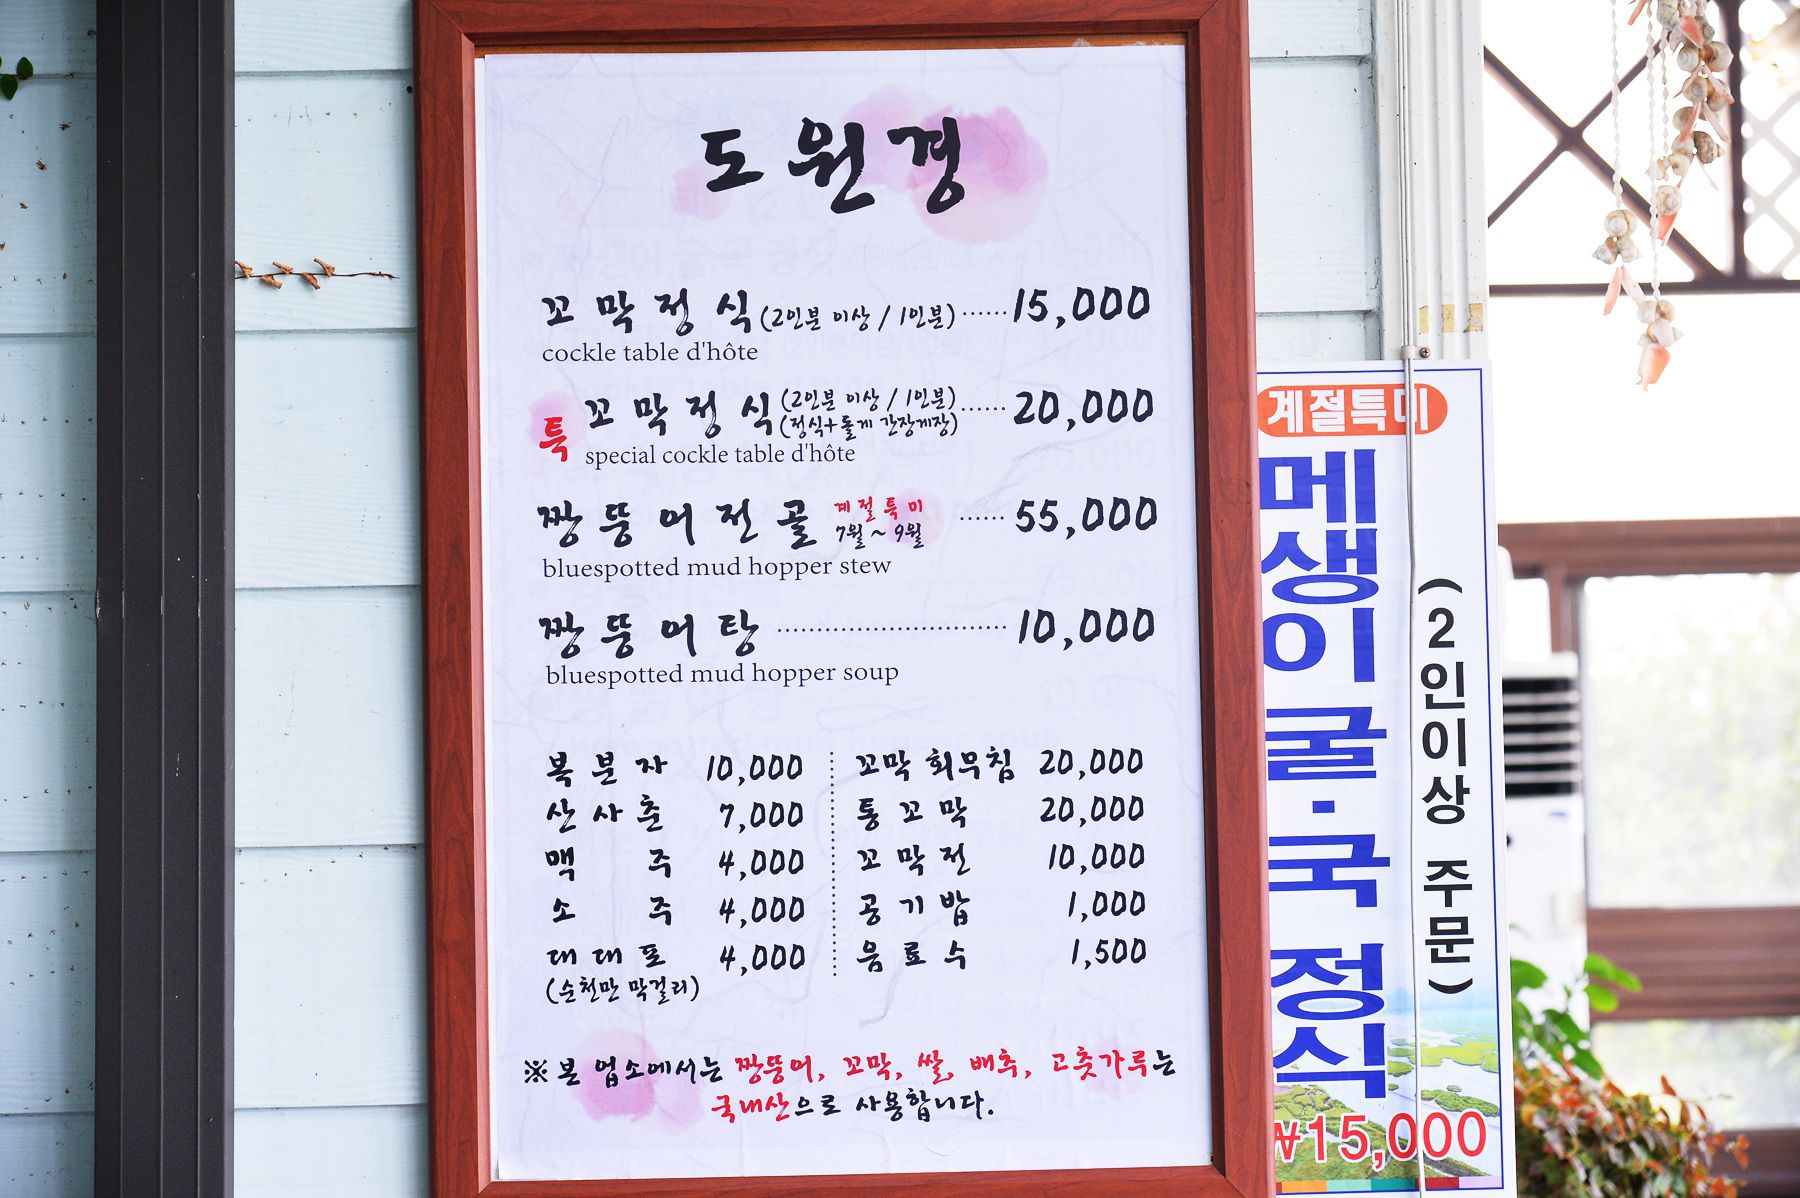 도원경
꼬막정식(2인분 이상 / 1인분) ...... 15,000
cockle table d'hôte
특 꼬막정식(2인분 이상 / 1인분) ...... 20,000
(정식+돌게 간장게장)
special cockle table d'hôte
짱뚱어전골 계절특미 7월 ~ 9월 ...... 55,000
bluespotted mud hopper stew
짱뚱어탕 ...... 10,000
bluespotted mud hopper soup
복분자 10,000
산사춘 7,000
맥주 4,000
소주 4,000
대대포 4,000
(순천만 막걸리)
꼬막회무침 20,000
통꼬막 20,000
꼬막전 10,000
공기밥 1,000
음료수 1,500
※ 본 업소에서는 짱뚱어, 꼬막, 쌀, 배추, 고춧가루는
국내산으로 사용합니다.
계절특미
메생이 굴·국 정식
(2인이상 주문)
₩15,000